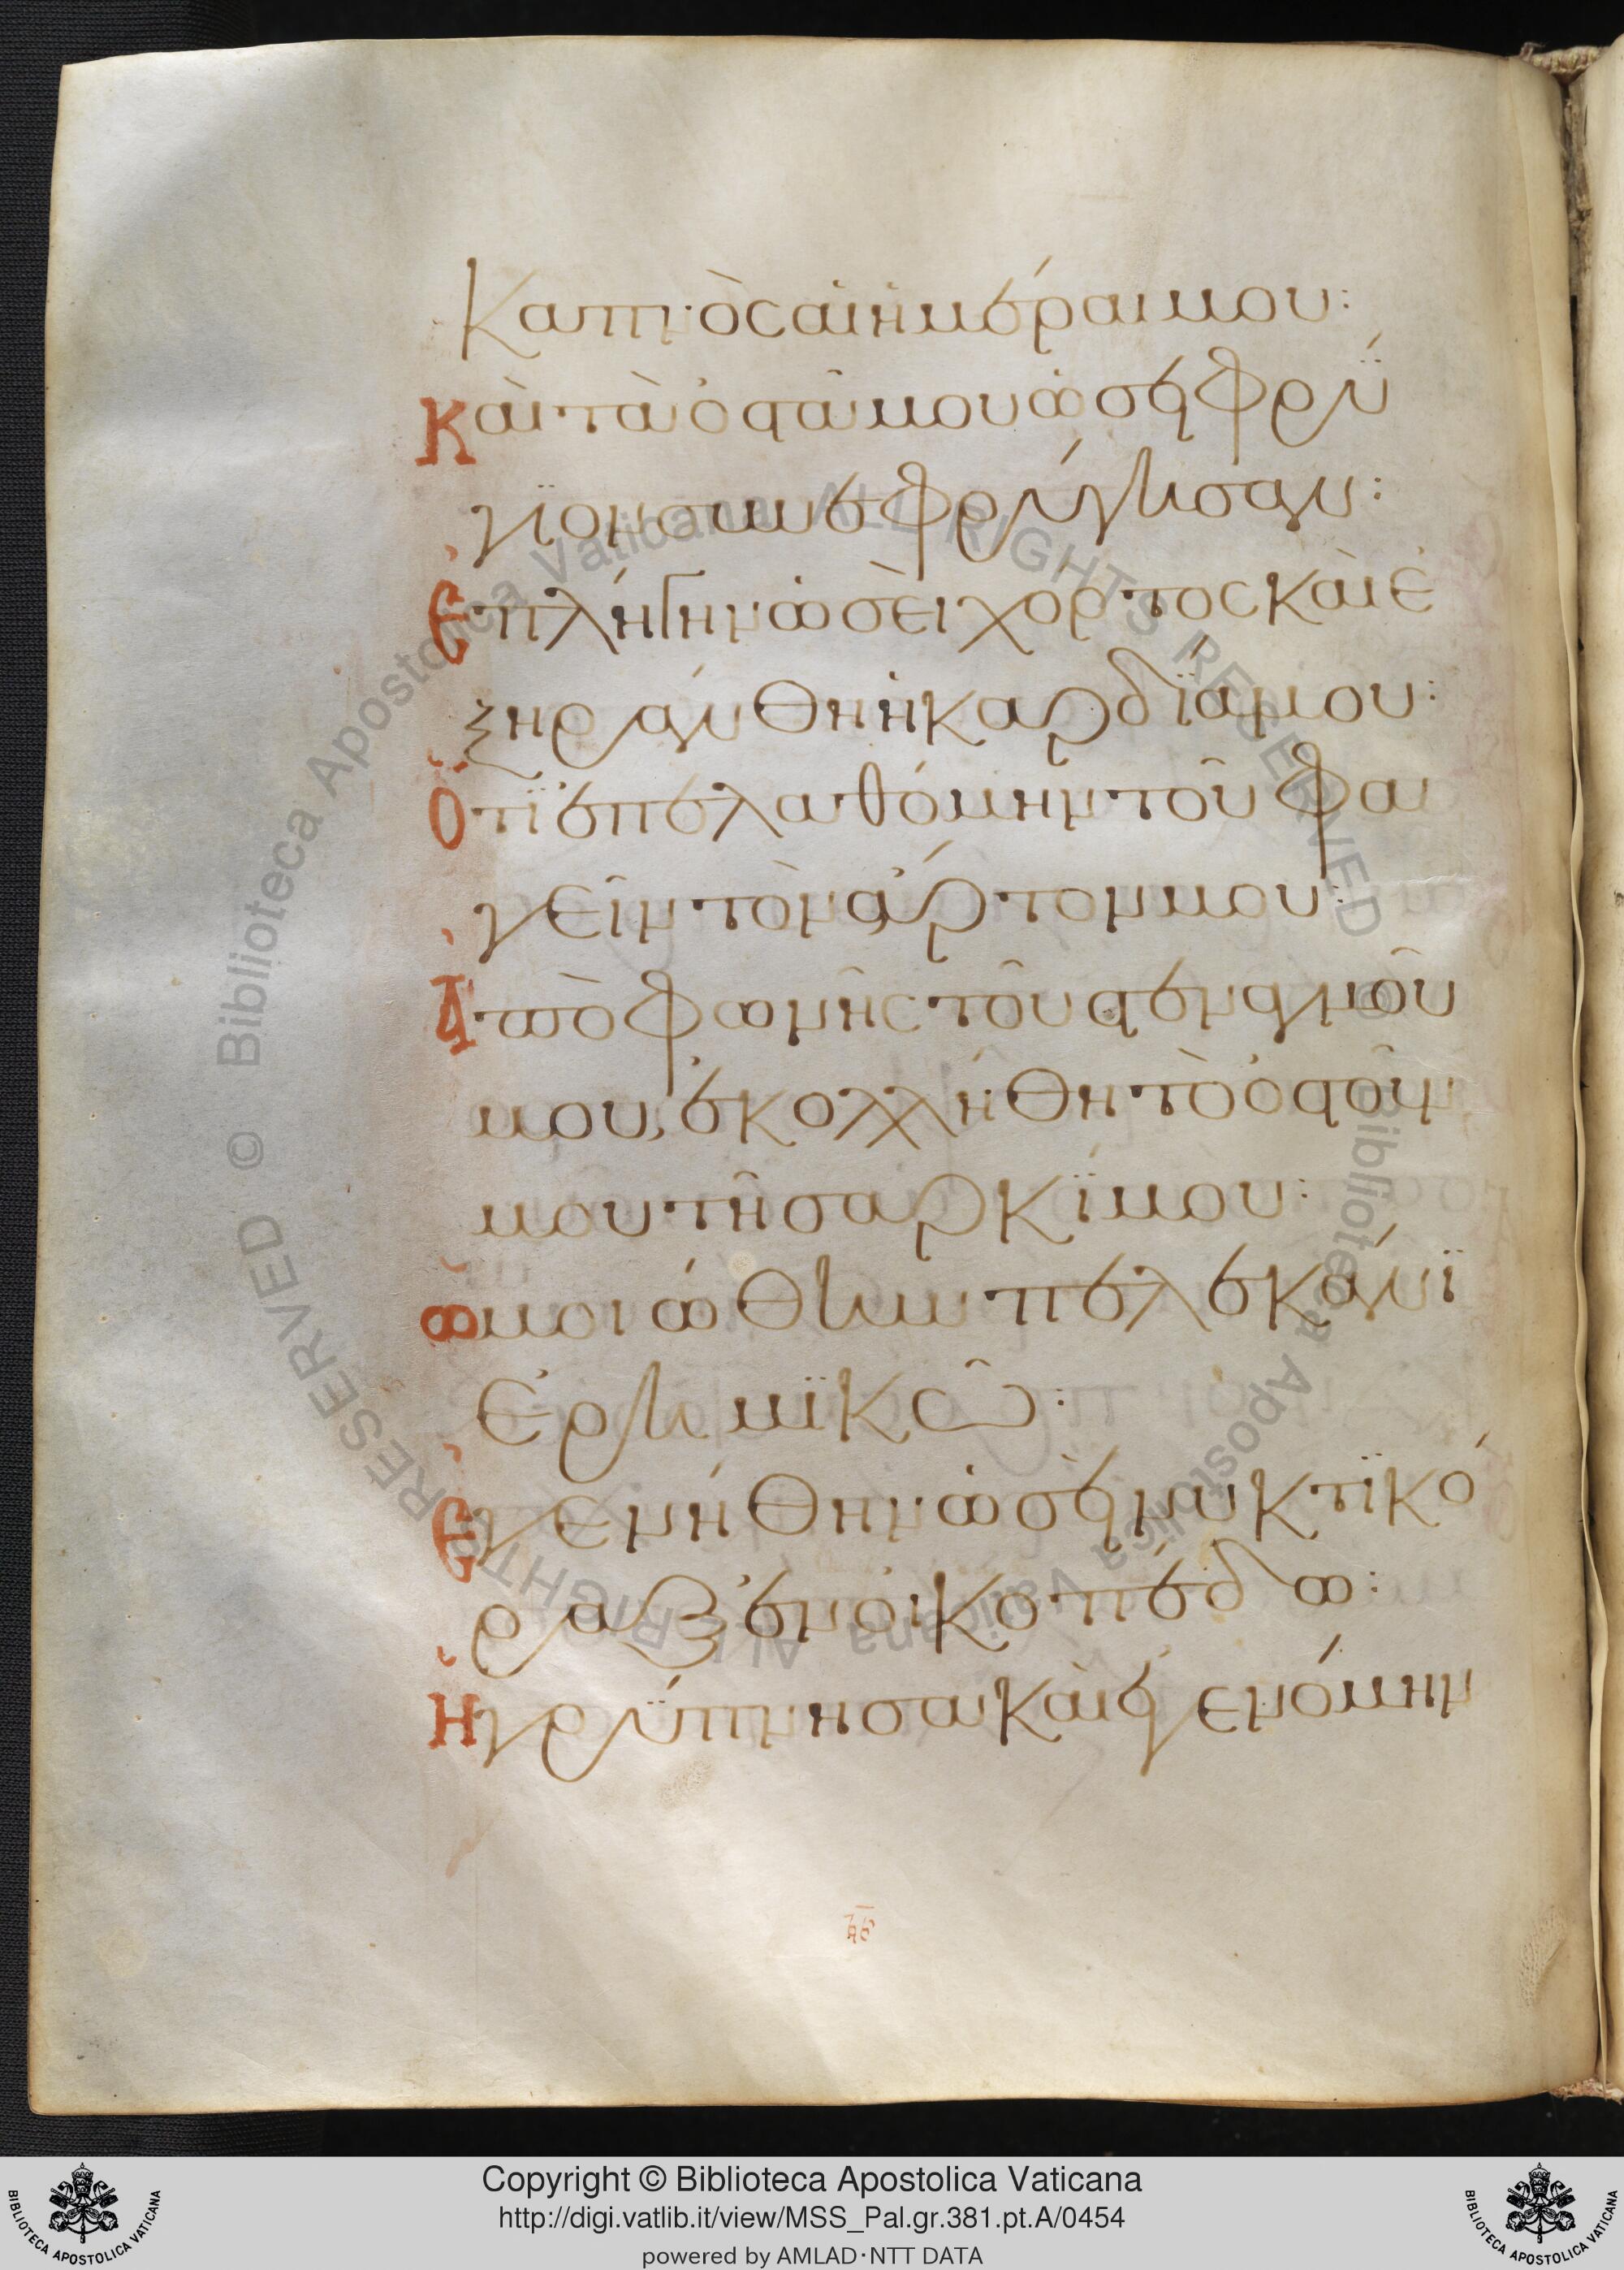 καπνὸς αἱ ἡμέραι μου:
Καὶ τὰ ὀστᾶ μου ὡσεὶ φρύ
γϊον συνεφρύγησαν:
Ἐπλήγην ὡσεὶ χόρτος καὶ ἐ
ξηράνθη ἡ καρδΐα μου:
Ὅτϊ ἐπελαθόμην τοῦ φα
γεῖν τὸν ἄρτον μου:
Ἀπὸ φωνῆς τοῦ στεναγμοῦ
μου, ἐκολλήθη τὸ ὀστοῦν
μου τῇ σαρκΐ μου:
Ὡμοιώθην πελεκᾶνϊ
ἐρημϊκῶ:
Ἐγενήθην ὡσεὶ νυκτϊκό
ραξ ἐν οἰκοπέδω:
Ἠγρύπνησα καὶ ἐγενόμην
Copyright © Biblioteca Apostolica Vaticana
http://digi.vatlib.it/view/MSS_Pal.gr.381.pt.A/0454
powered by AMLAD·NTT DATA
BIBLIOTECA APOSTOLICA VATICANA
BIBLIOTECA APOSTOLICA VATICANA
© Biblioteca Apostolica Vaticana ALL RIGHTS RESERVED
© Biblioteca Apostolica Vaticana ALL RIGHTS RESERVED